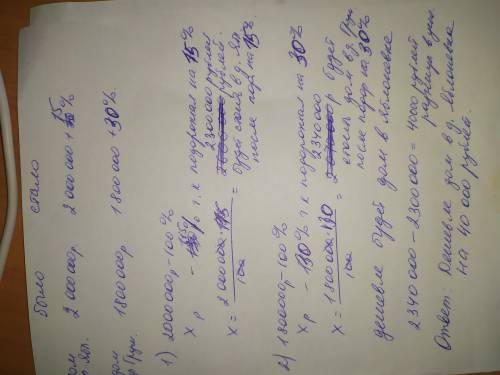 было стало
дом Ябл. 2 000 000р 2 000 000 + 15%
дом Груш. 1800 000р 1800 000 + 30%.
1) 2000000р - 100%
х р - 115% т.к подорожал на 15%
х = 2 000 000 · 115 / 100 = 2300 000 рублей
будет стоить в д. Ябл.
после под. на 15%.
2) 1800000р - 100%
х р - 130% т.к подорожал на 30%
х = 1800 000 · 130 / 100 = 2340 000 р будет
стоить дом в д. Груш
после подор на 30%
дешевле будет дом в Яблоневке
2340 000 - 2300000 = 4000 рублей
разница в цене.
Ответ: дешевле дом в д. Яблоневка
на 40 000 рублей.